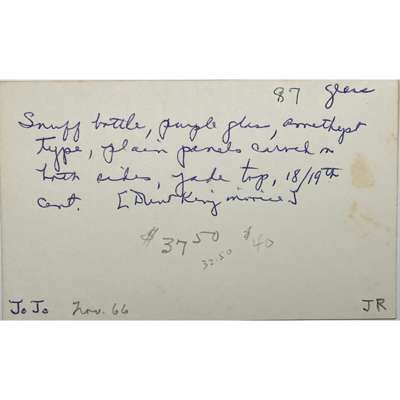 87 glass
Snuff bottle, purple glass, amethyst
type, plain panels carved on
both sides, jade top, 18/19th
cent. [
$37.50 $40
32.50
JoJo Nov. 66 JR